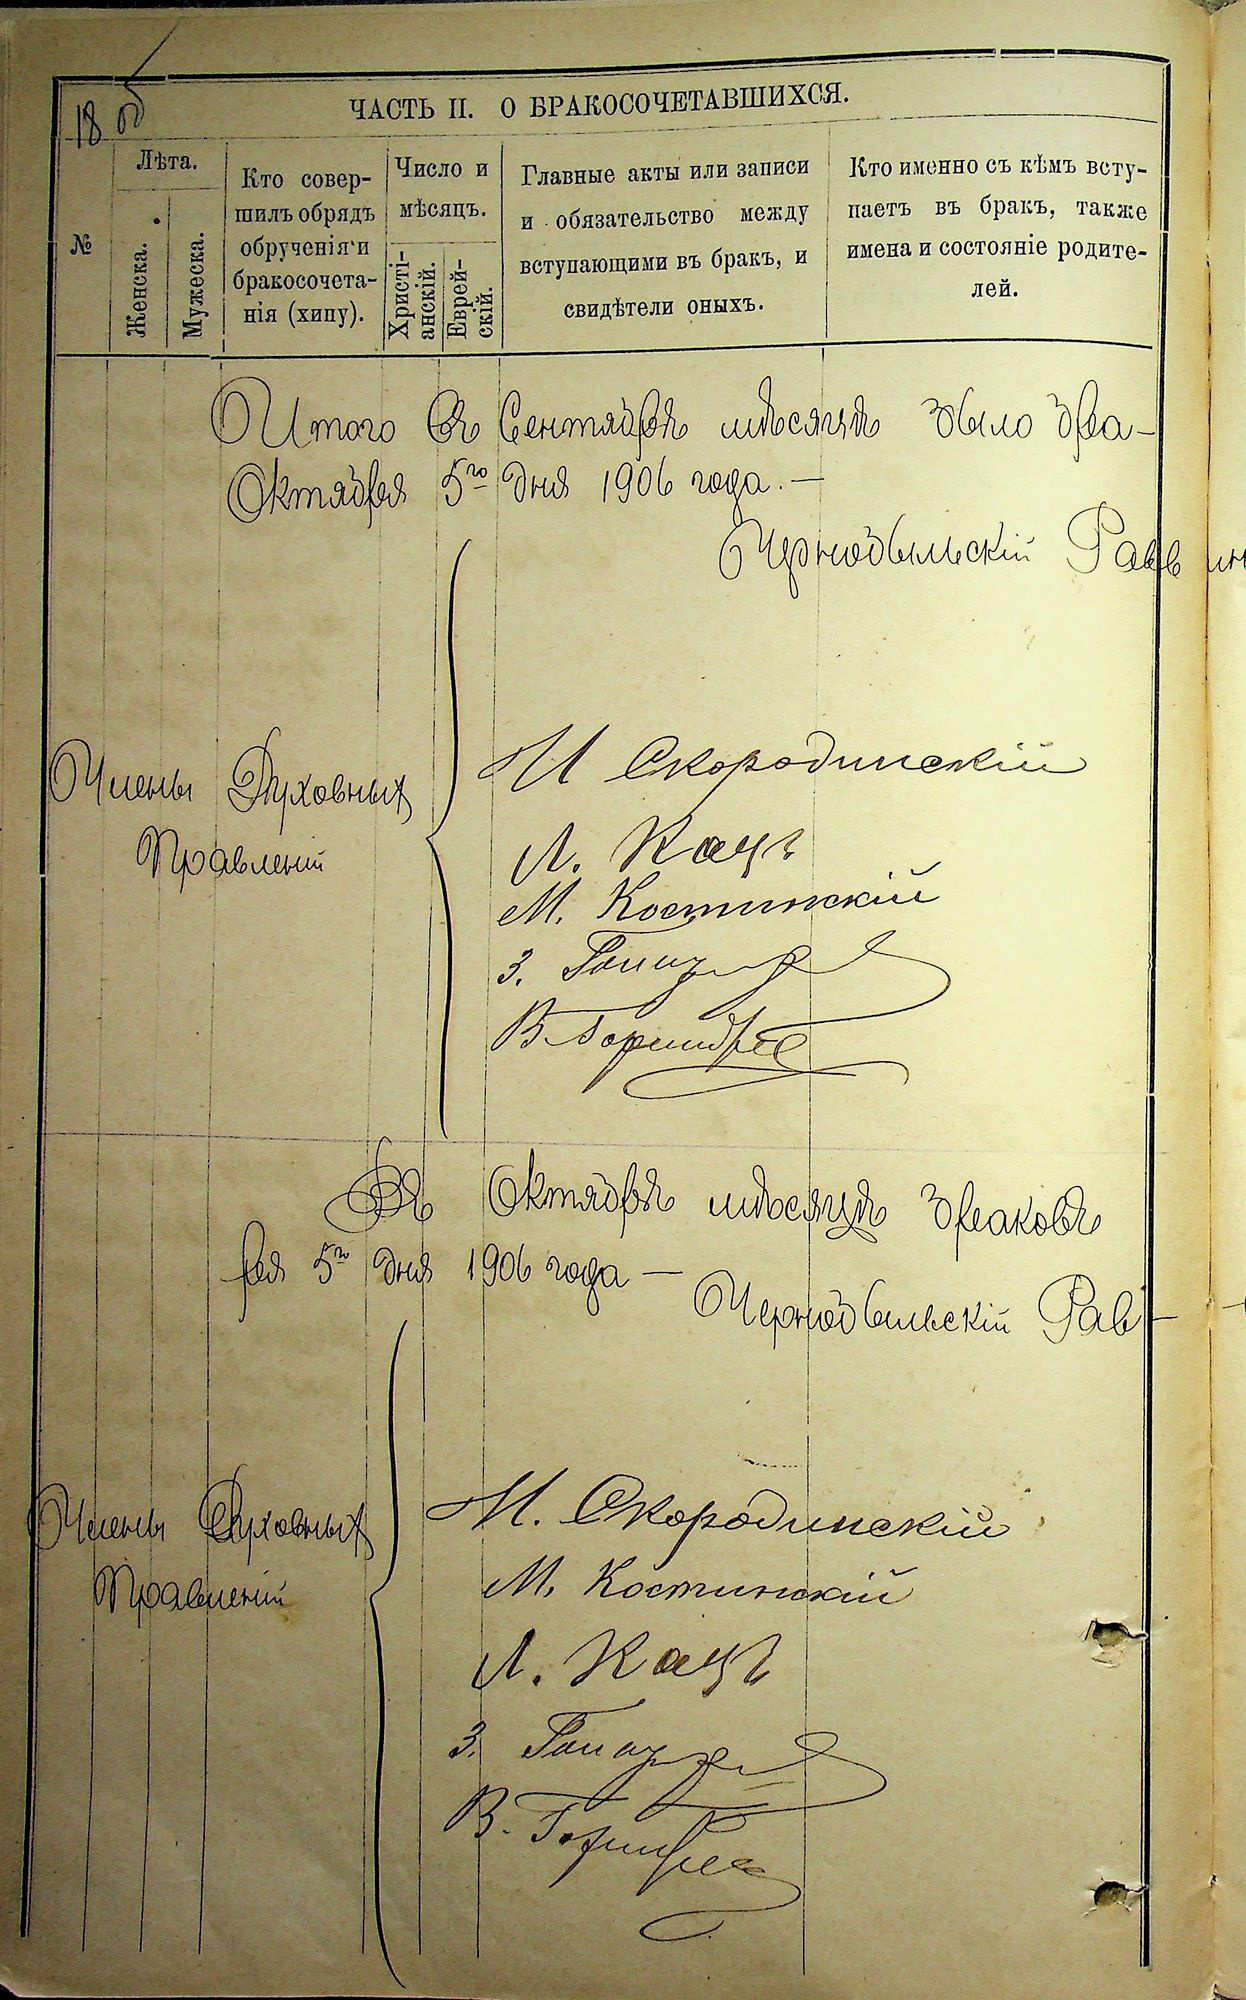 18 об
ЧАСТЬ II. О БРАКОСОЧЕТАВШИХСЯ.
№
Лѣта.
Женска.
Мужеска.
Кто совер-
шилъ обрядъ
обрученія и
бракосочета-
нія (хипу).
Число и
мѣсяцъ.
Христі-
анскій.
Еврей-
скій.
Главные акты или записи
и обязательство между
вступающими въ бракъ, и
свидѣтели оныхъ.
Кто именно съ кѣмъ всту-
паетъ въ бракъ, также
имена и состояніе родите-
лей.
Итого въ Сентябрѣ мѣсяцѣ было бра-
Октября 5го дня 1906 года. —
Чернобыльскій Раввин
Члены Духовныхъ
Правленій
И Скородинскій
Л. Кацъ
М. Костинскій
З.
В.
Въ Октябрѣ мѣсяцѣ браковъ
бря 5го дня 1906 года —
Чернобыльскій Рав-
Члены Духовныхъ
Правленій
И. Скородинскій
М. Костинскій
Л. Кацъ
З.
В.